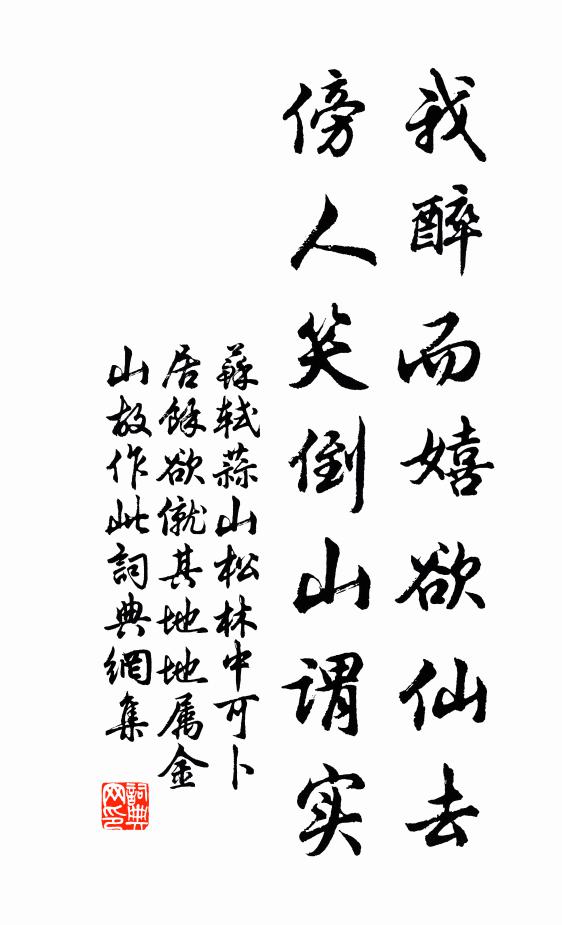 我醉而嬉欲仙去
傍人笑倒山谓实
蘇轼蒜山松林中可卜
居餘欲僦其地地属金
山故作此詞典網集
詞典
网印